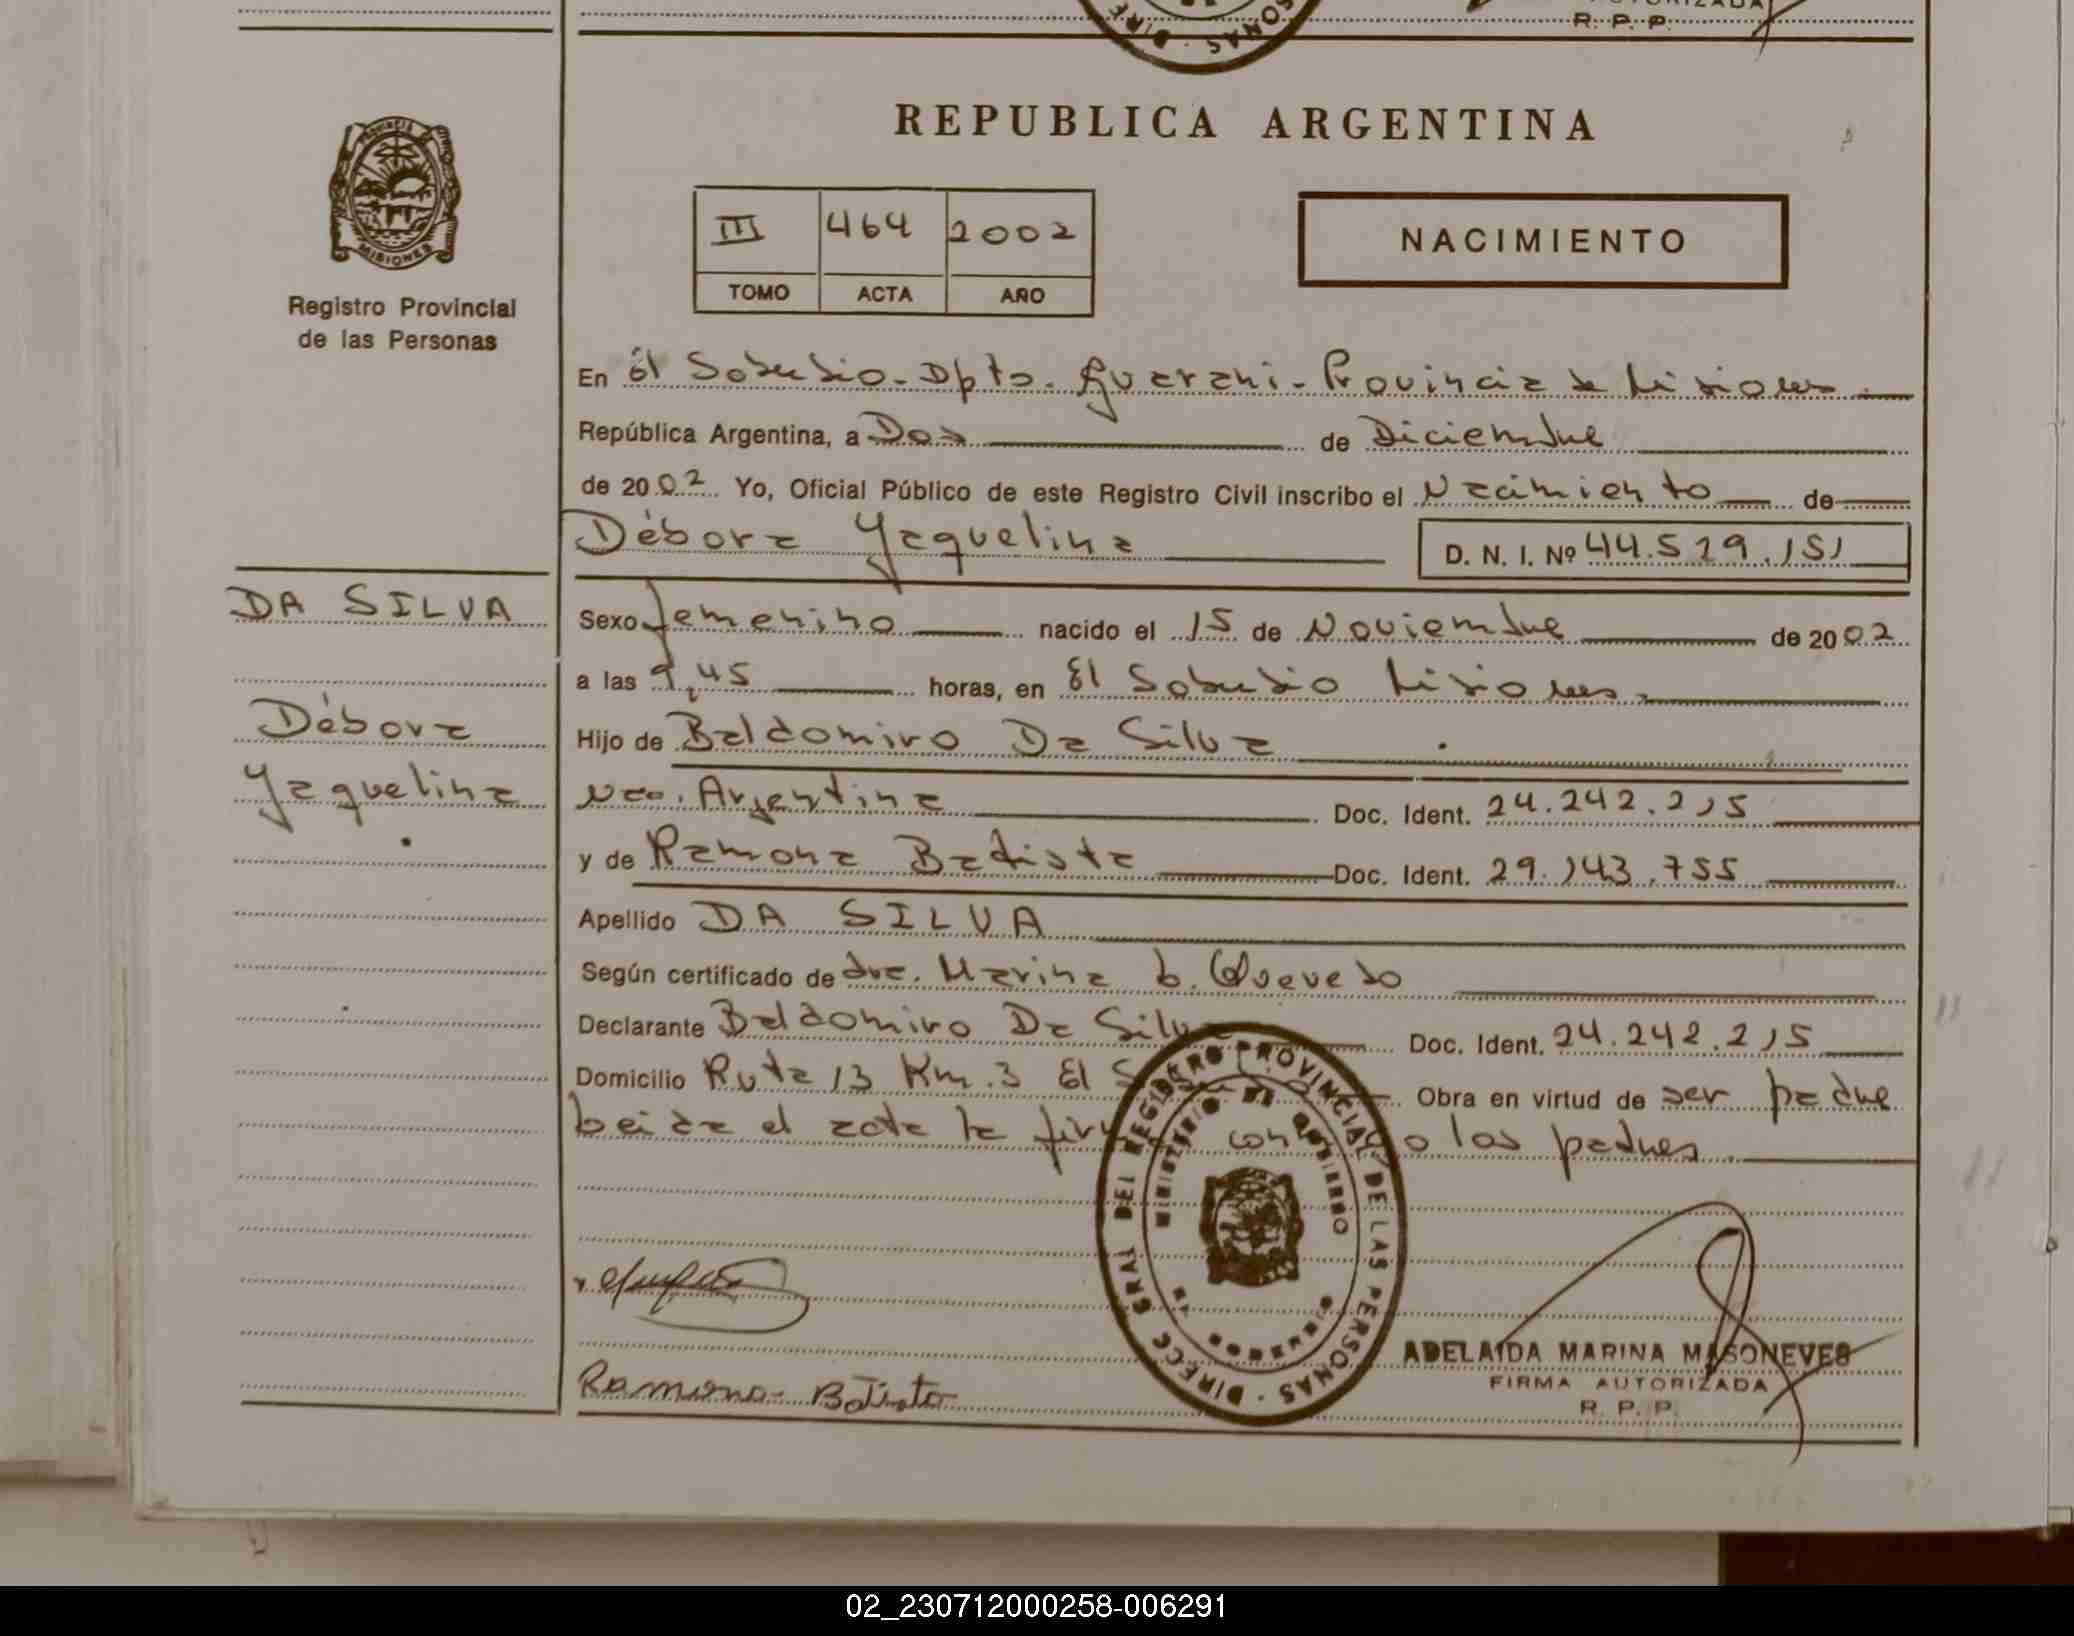 AUTORIZADA
R. P. P.
REPUBLICA ARGENTINA
PROVINCIA
MISIONES
Registro Provincial
de las Personas
III 464 2002
TOMO ACTA AÑO
NACIMIENTO
En El Soberbio - Dpto. Guarani - Provincia de Misiones
República Argentina, a Dos de Diciembre
de 2002 Yo, Oficial Público de este Registro Civil inscribo el Nacimiento de
Débora Yaquelina D. N. I. Nº 44.519.151
DA SILVA
Débora
Yaquelina
Sexo femenino nacido el 15 de Noviembre de 2002
a las 9,45 horas, en El Soberbio Misiones
Hijo de Baldomiro Da Silva
Nac. Argentina Doc. Ident. 24.242.215
y de Ramona Batista Doc. Ident. 29.143.755
Apellido DA SILVA
Según certificado de dra. Marina b. Quevedo
Declarante Baldomiro Da Silva Doc. Ident. 24.242.215
Domicilio Ruta 13 Km.3 El Soberbio Obra en virtud de ser padre
Leida el acta la firman conmigo los padres
DIRECC. GRAL DEL REGISTRO PROVINCIAL DE LAS PERSONAS
MINISTERIO DE GOBIERNO
MISIONES
Ramona Batista
ADELAIDA MARINA MASONEVES
FIRMA AUTORIZADA
R. P. P.
02_230712000258-006291